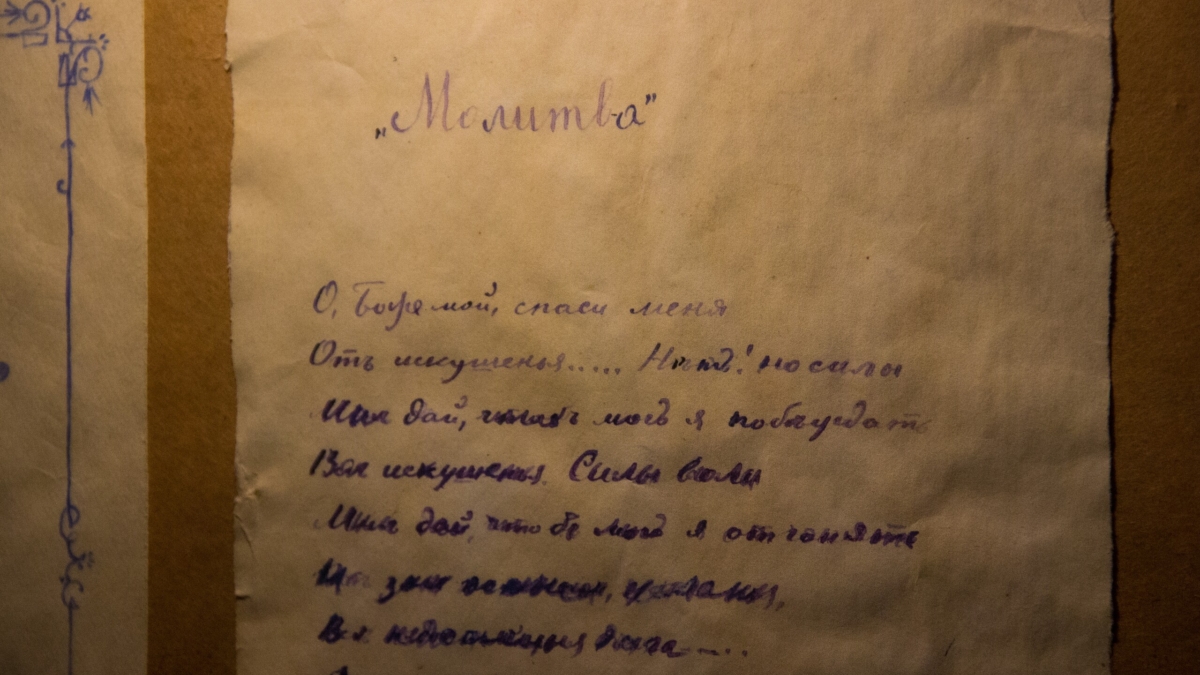 „Молитва”
О, Боже мой, спаси меня
Отъ искушенья..... Нѣтъ! но силы
Мнѣ дай, чтобъ могъ я побѣждать
Всѣ искушенья. Силы воли
Мнѣ дай, чтобъ могъ я отгонять
Всѣ